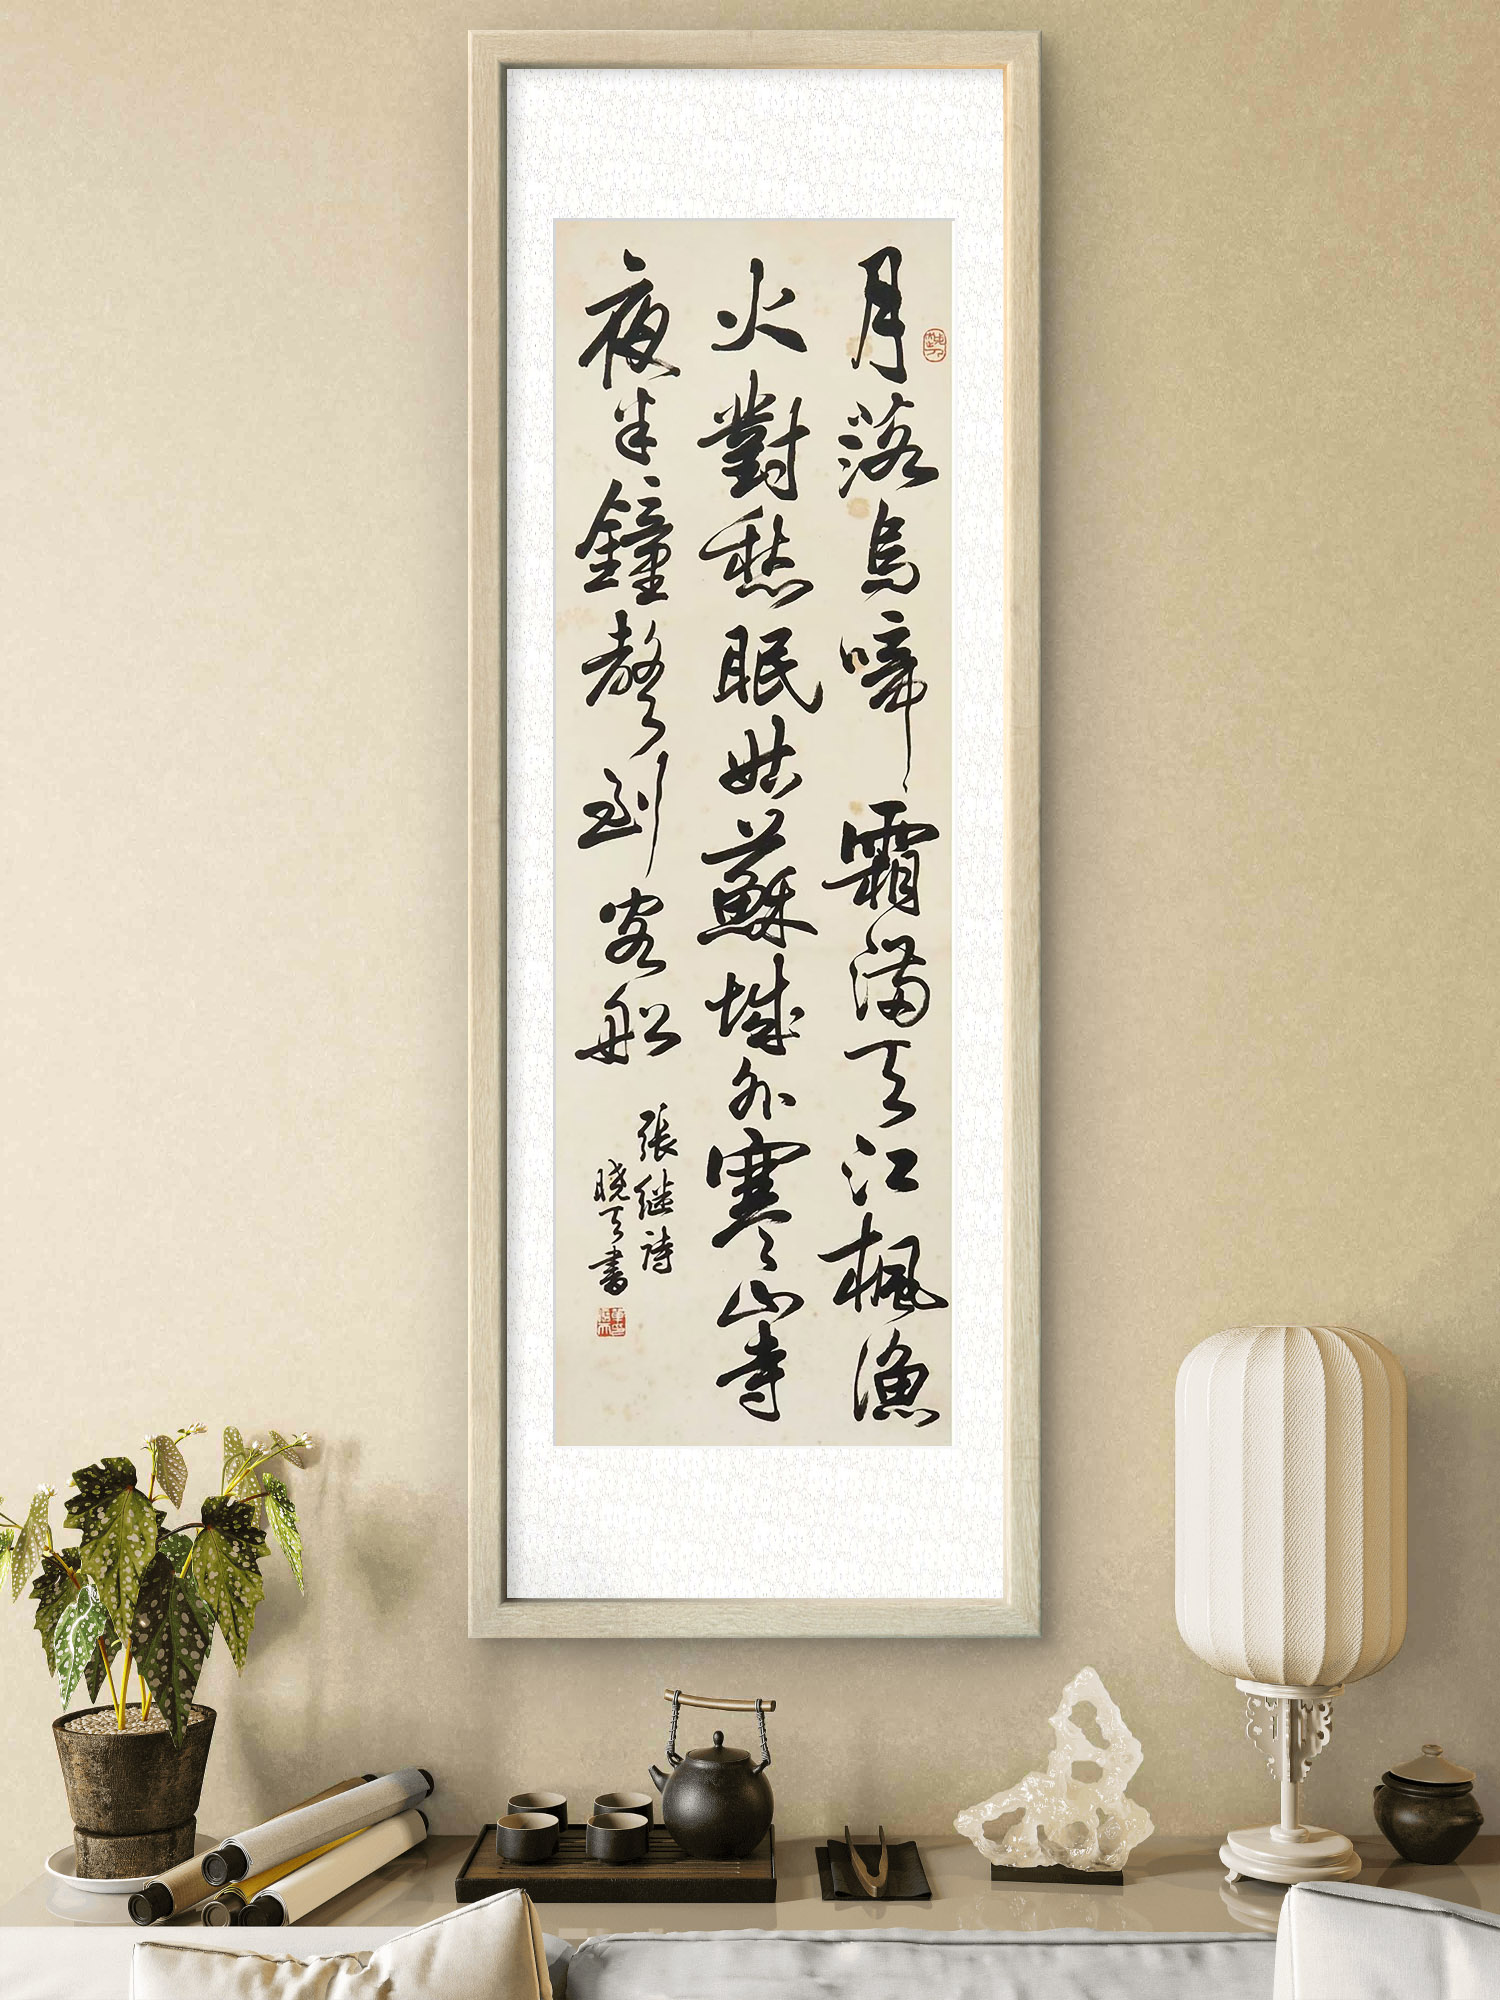 月落烏啼霜満天江楓漁
火對愁眠姑蘇城外寒山寺
夜半鐘聲到客船
張继诗
晓天書